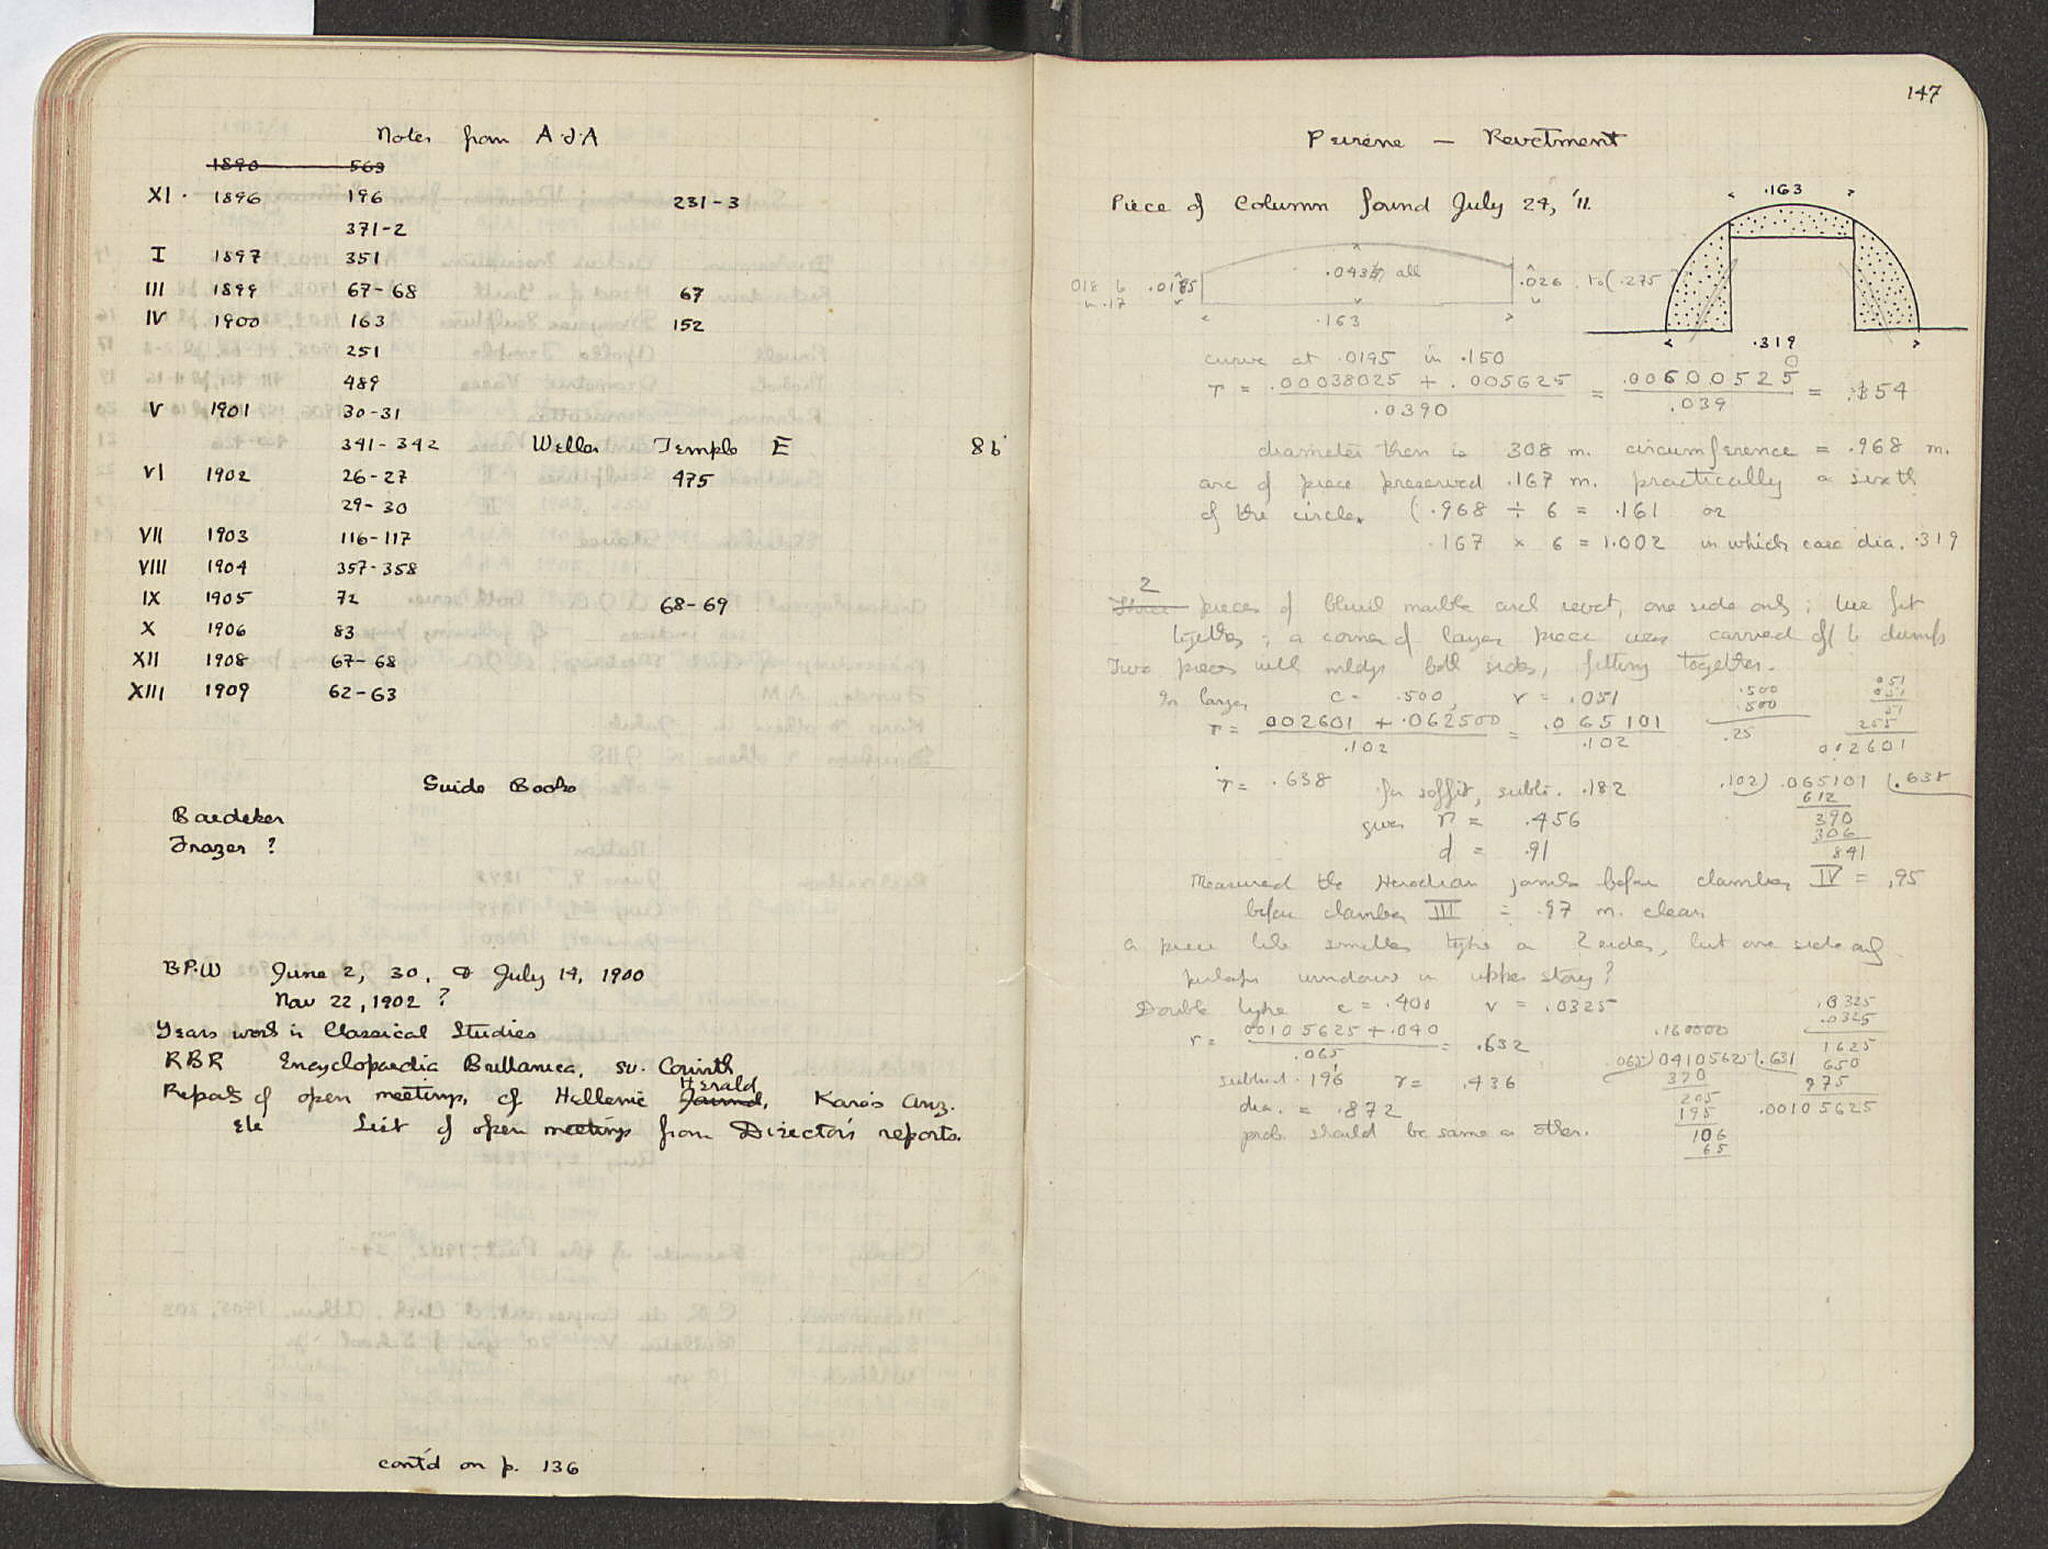 Notes from A.J.A
1890 563
XI. 1896 196 231-3
371-2
I 1897 351
III 1899 67-68 67
IV 1900 163 152
251
489
V 1901 30-31
341-342 Weller Temple E 86
VI 1902 26-27 475
29-30
VII 1903 116-117
VIII 1904 357-358
IX 1905 72 68-69
X 1906 83
XII 1908 67-68
XIII 1909 62-63
Guide Books
Baedeker
Frazer ?
B.P.W June 2, 30, & July 14, 1900
Nov 22, 1902 ?
Years work in Classical Studies
RBR Encyclopaedia Brittanica, sv. Corinth
Herald
Reports of open meetings, cf Hellenic Journal, Karo's Anz.
etc List of open meetings from Director's reports.
cont'd on p. 136
147
Peirene — Revetment
Piece of Column found July 24, '11.
.163
.0195 .043 all .026
.163
.319
curve at .0195 in .150
r = .00038025 + .005625 / .0390 = .006005250 / .039 = .154
diameter then is 308 m. circumference = .968 m.
arc of piece preserved .167 m. practically a sixth
of the circle. (.968 ÷ 6 = .161 or
.167 × 6 = 1.002 in which case dia. .319
2
Three pieces of bluish marble arch revet, one side only; two fit
together; a corner of larger piece was carried off to dump
Two pieces with mldgs both sides, fitting together.
In larger c = .500, v = .051
r = 002601 + .062500 / .102 = .065101 / .102
.500
.500
.25
051
051
51
255
002601
r = .638 for soffit, subtr. .182
gives r = .456
d = .91
.102) .065101 (.638
612
390
306
841
Measured the Herodian jambs before chamber IV = .95
before chamber III = .97 m. clear.
A piece like smaller type on 2 sides, but one side only
perhaps windows in upper story?
Double type c = .400 v = .0325
r = 00105625 + .040 / .065 = .632
subtract .196 r = .436
dia. = .872
prob. should be same as other.
.160000
.065) 04105625 (.631
390
205
195
106
65
.0325
.0325
1625
650
975
.00105625